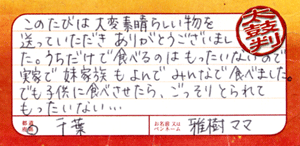 このたびは大変素晴らしい物を
送っていただきありがとうございまし
た。うちだけで食べるのはもったいないので
実家で妹家族もよんでみんなで食べました。
でも子供に食べさせたら、ごっそりとられて
もったいない…
太鼓判
都道府県 千葉
お名前又はペンネーム 雅樹ママ